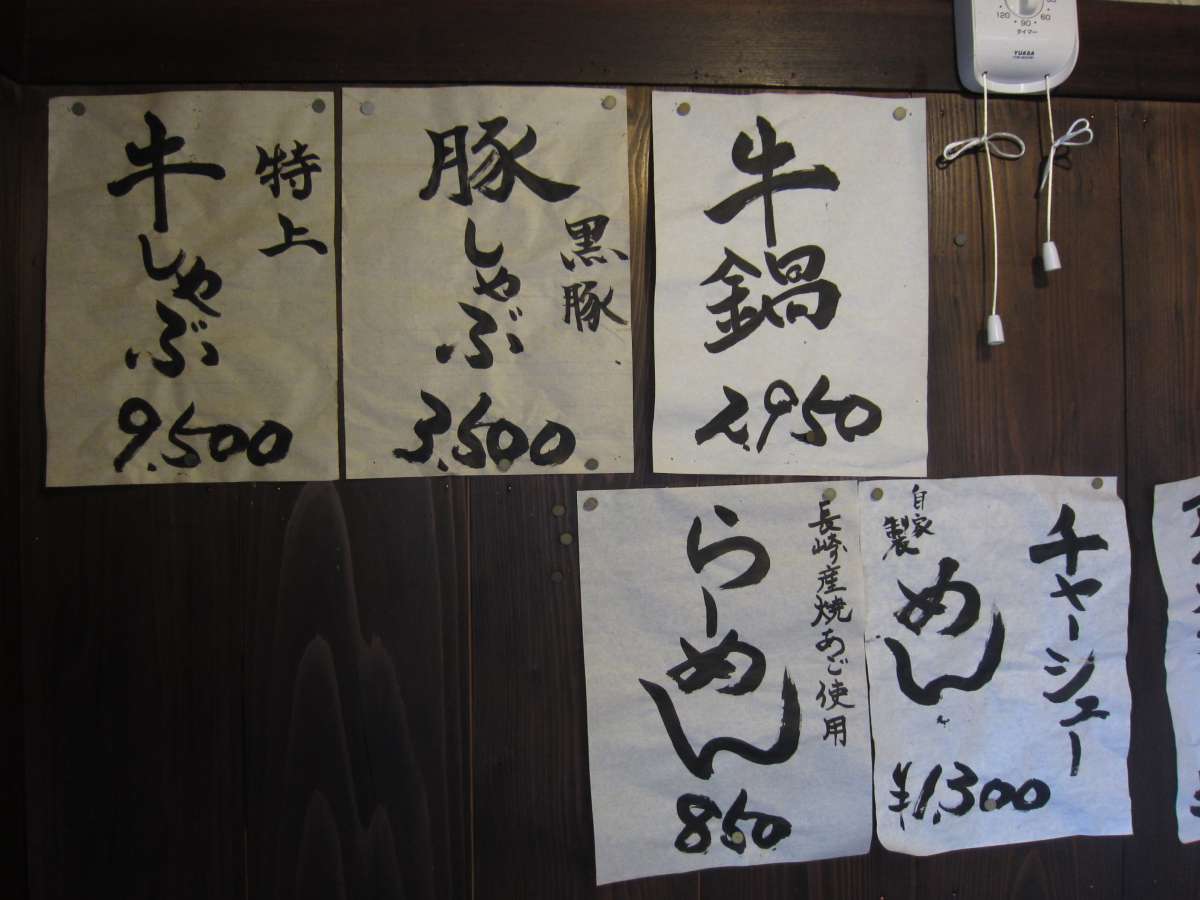 特上
牛しゃぶ
9,500
黒豚
豚しゃぶ
3,500
牛鍋
2,950
長崎産焼あご使用
らーめん
850
チャーシュー
自家製
めん
¥1,300
120
90
60
タイマー
YUASA